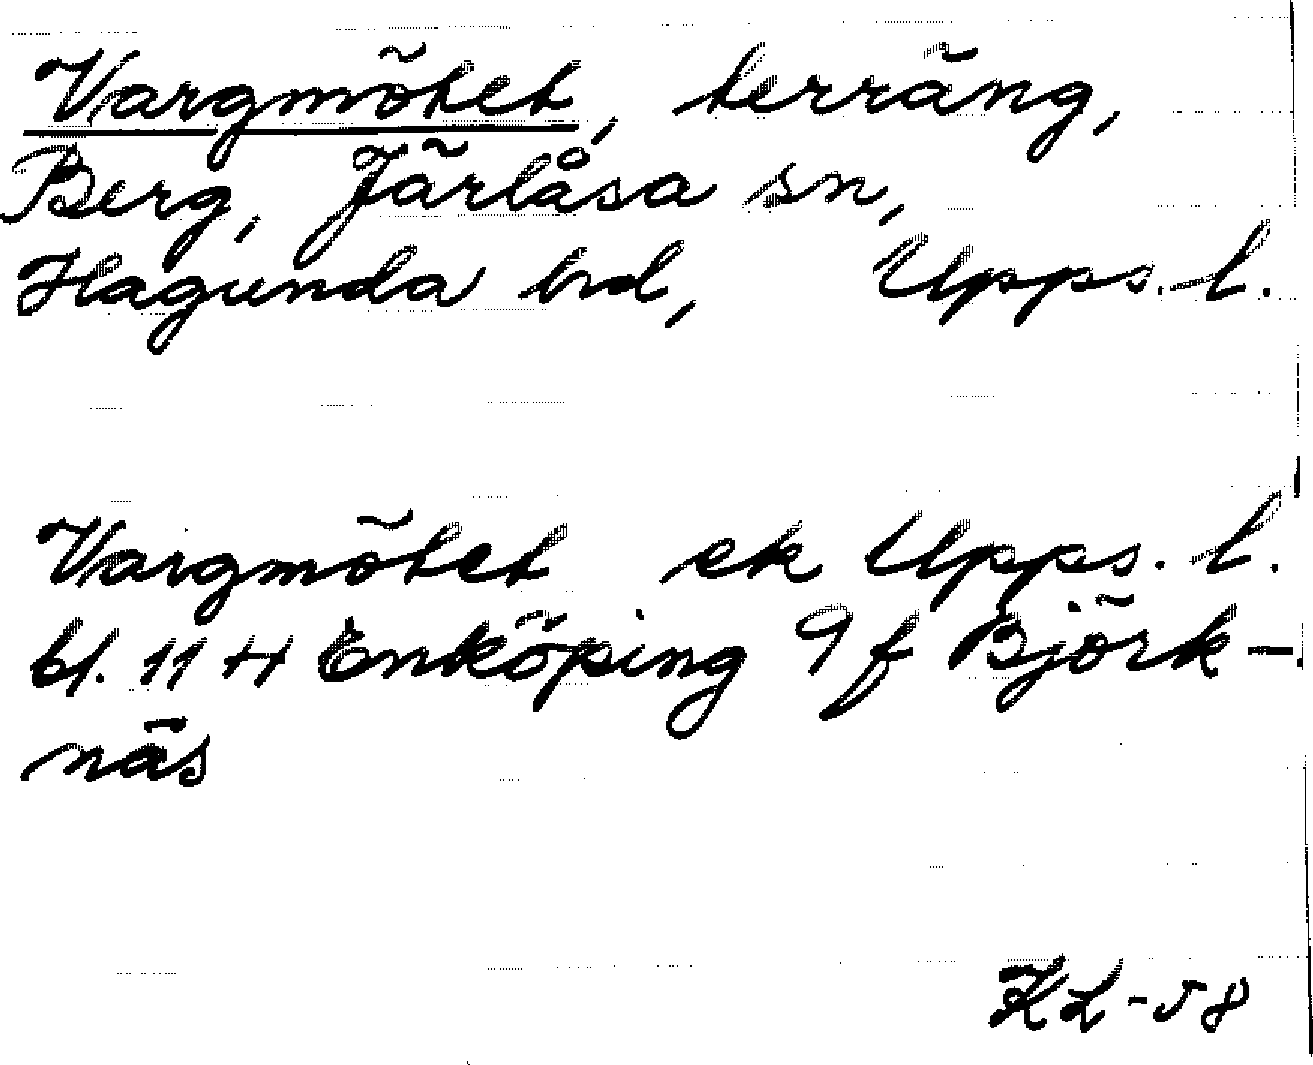 Vargmötet, terräng,
Berg, Järlåsa sn,
Hagunda hd, Upps. l.
Vargmötet ek Upps. l.
bl. 11 H Enköping 9 f Björk-
näs
KL-58